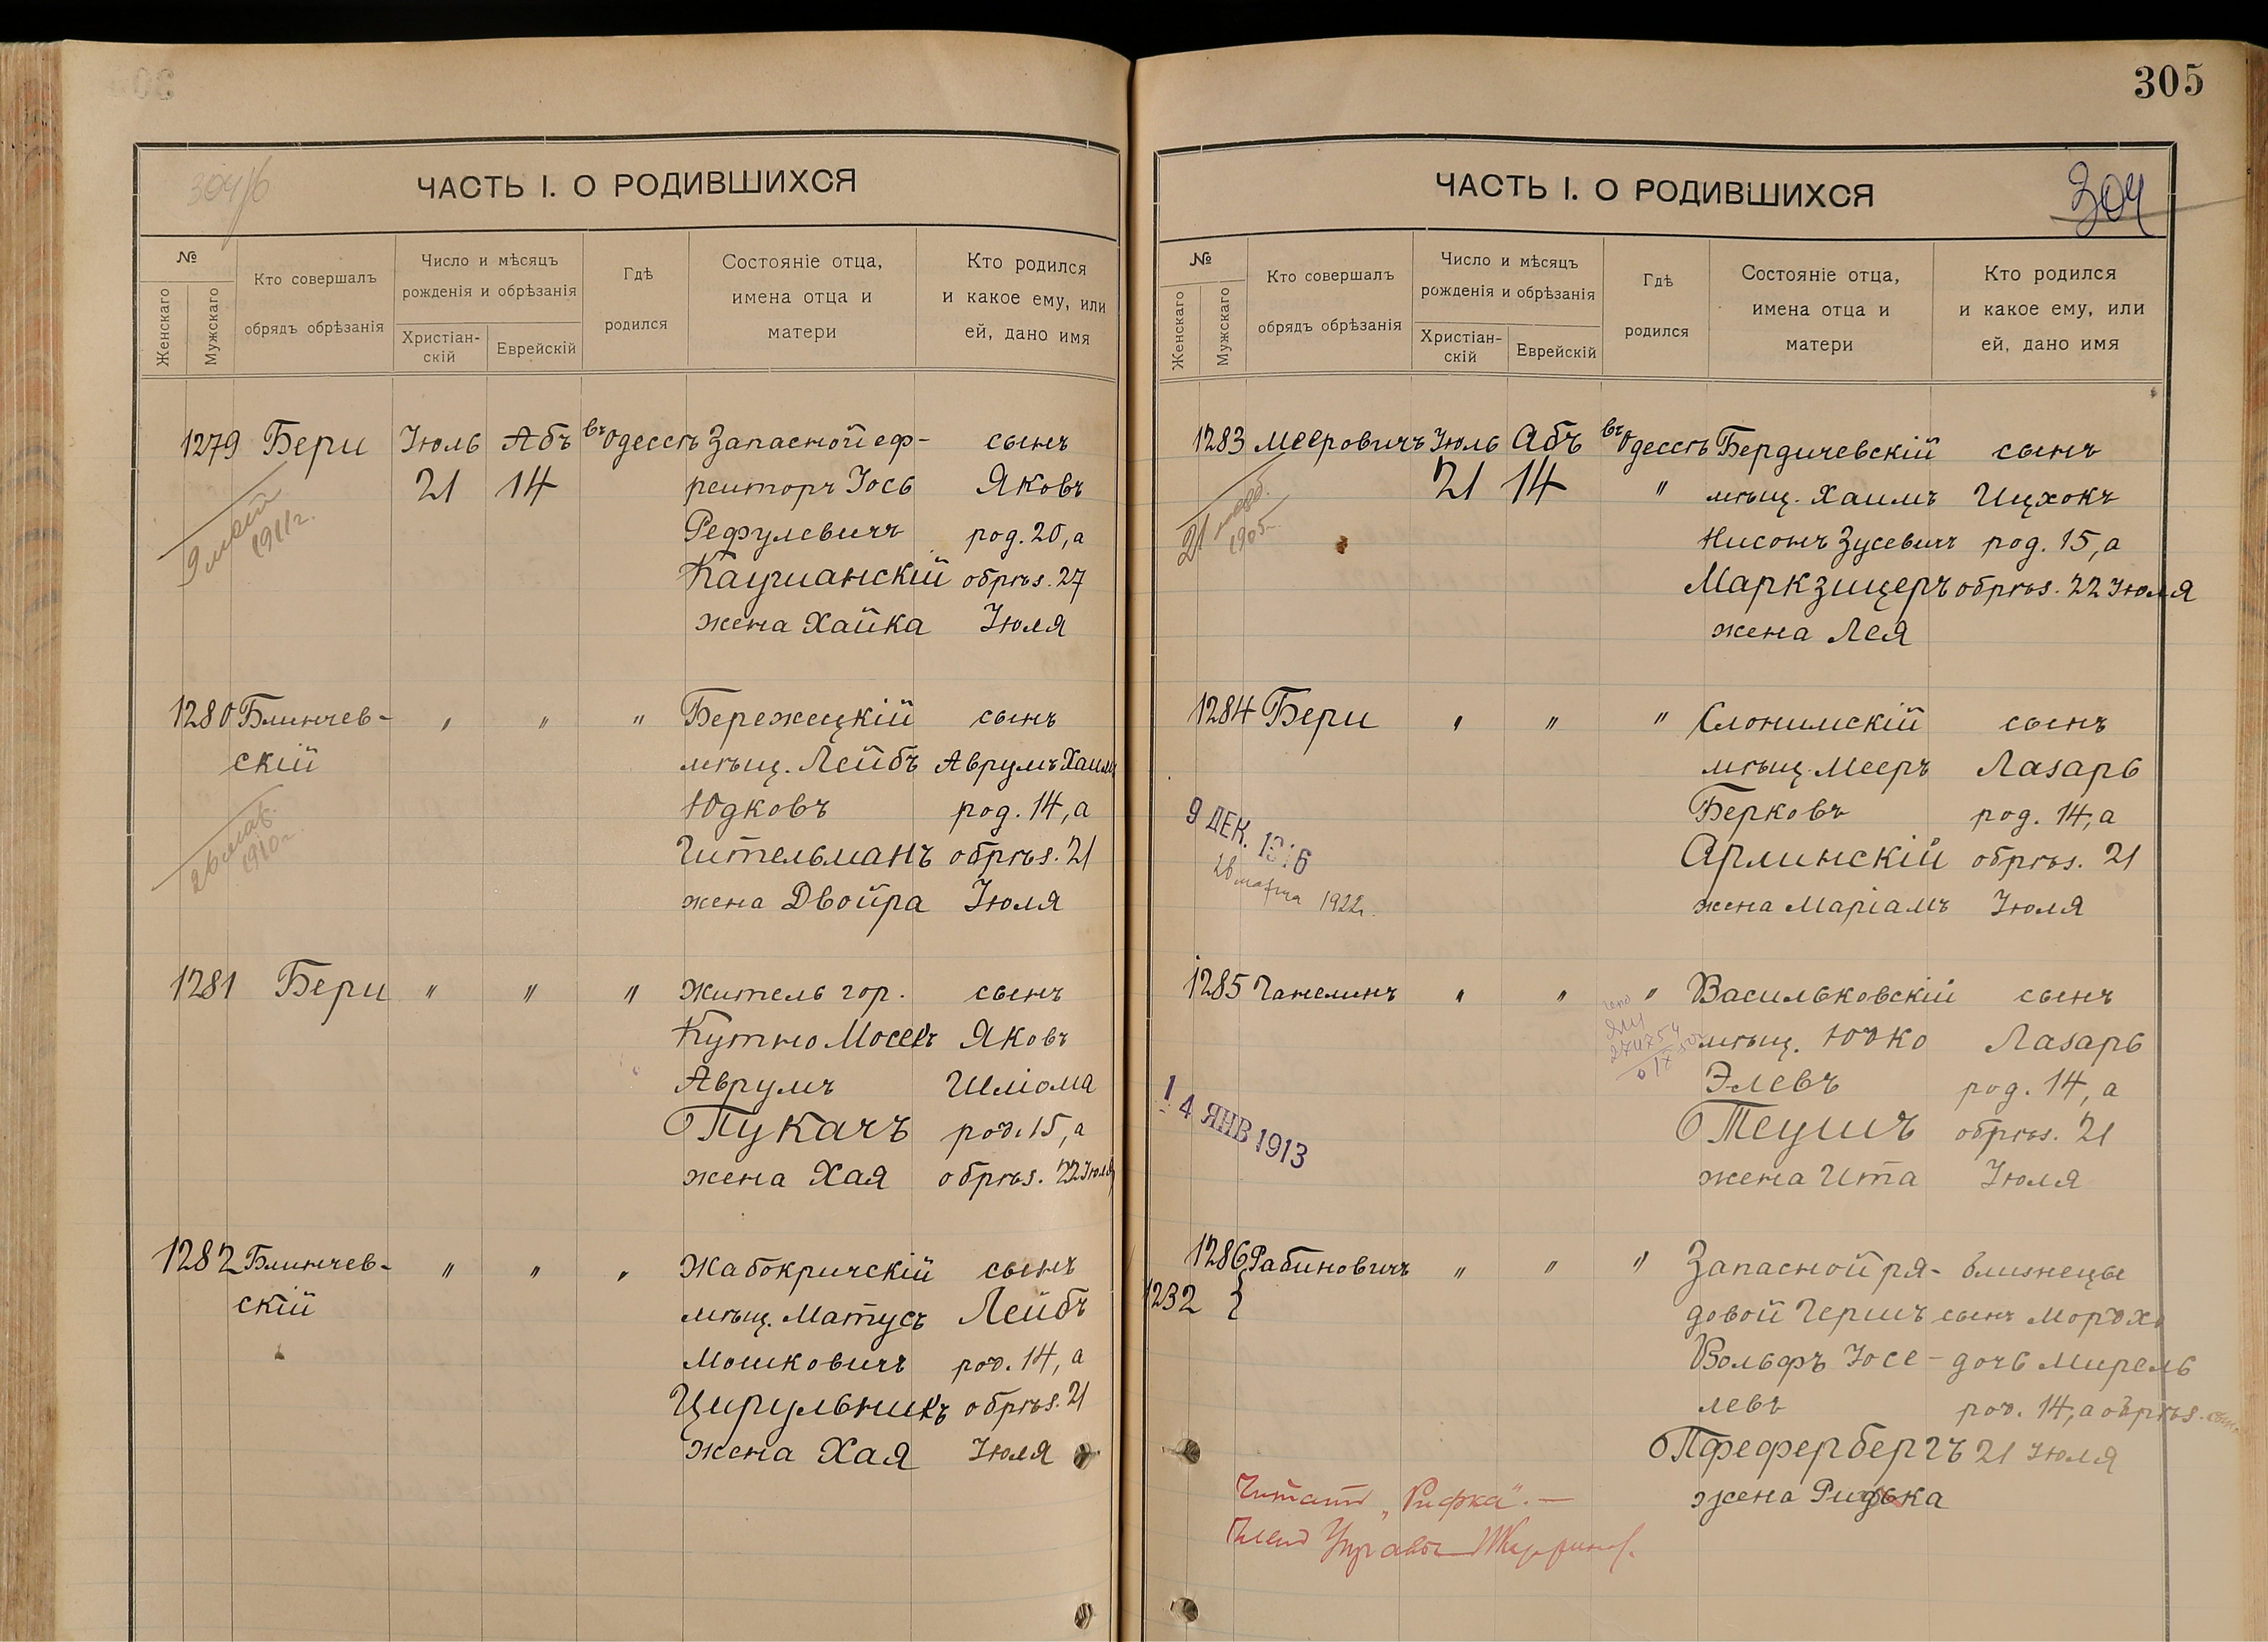 305
304/б
ЧАСТЬ I. О РОДИВШИХСЯ
№
Женскаго
Мужскаго
Кто совершалъ
обрядъ обрѣзанія
Число и мѣсяцъ
рожденія и обрѣзанія
Христіан-
скій
Еврейскій
Гдѣ
родился
Состояніе отца,
имена отца и
матери
Кто родился
и какое ему, или
ей, дано имя
1279 Бери Іюль Абъ въ Одессѣ Запасной еф- сынъ
21 14 рейторъ Іось Яковъ
Рефулевичъ род. 20, а
Каушанскій обрѣз. 27
жена Хайка Іюля
9 мая
1911 г.
1280 Блинчев- " " " Бережецкій сынъ
скій мѣщ. Лейбъ Аврумъ Хаим
Юдковъ род. 14, а
Гительманъ обрѣз. 21
жена Двойра Іюля
26
1910 г.
1281 Бери " " " Житель гор. сынъ
Кутно Мосекъ Яковъ
Аврумъ Шліома
Пукачъ род. 15, а
жена Хая обрѣз. 22 Іюля
1282 Блинчев- " " " Жабокричскій сынъ
скій мѣщ. Матусъ Лейбъ
Мошковичъ род. 14, а
Цирульникъ обрѣз. 21
жена Хая Іюля
ЧАСТЬ I. О РОДИВШИХСЯ
304
№
Женскаго
Мужскаго
Кто совершалъ
обрядъ обрѣзанія
Число и мѣсяцъ
рожденія и обрѣзанія
Христіан-
скій
Еврейскій
Гдѣ
родился
Состояніе отца,
имена отца и
матери
Кто родился
и какое ему, или
ей, дано имя
1283 Мееровичъ Іюль Абъ въ Одессѣ Бердичевскій сынъ
21 14 " мѣщ. Хаимъ Ицхокъ
Нисонъ Зусевичъ род. 15, а
Маркзицеръ обрѣз. 22 Іюля
жена Лея
21
1905 г.
1284 Бери " " " Слонимскій сынъ
мѣщ. Мееръ Лазарь
Берковъ род. 14, а
Арлинскій обрѣз. 21
жена Маріамъ Іюля
9 ДЕК. 1916
28 марта 1922 г.
1285 Ганелинъ " " " Васильковскій сынъ
мѣщ. Юдко Лазарь
Элевъ род. 14, а
Теушъ обрѣз. 21
жена Ита Іюля
14 ЯНВ 1913
1286 Рабиновичъ " " " Запасной ря- близнецы
1232 { довой Гершъ сынъ Мордхо
Вольфъ Іосе- дочь Мирель
левъ род. 14, а обрѣз.
Пфефербергъ 21 Іюля
жена Ривка
Читать „Рифка". —
Членъ Управы